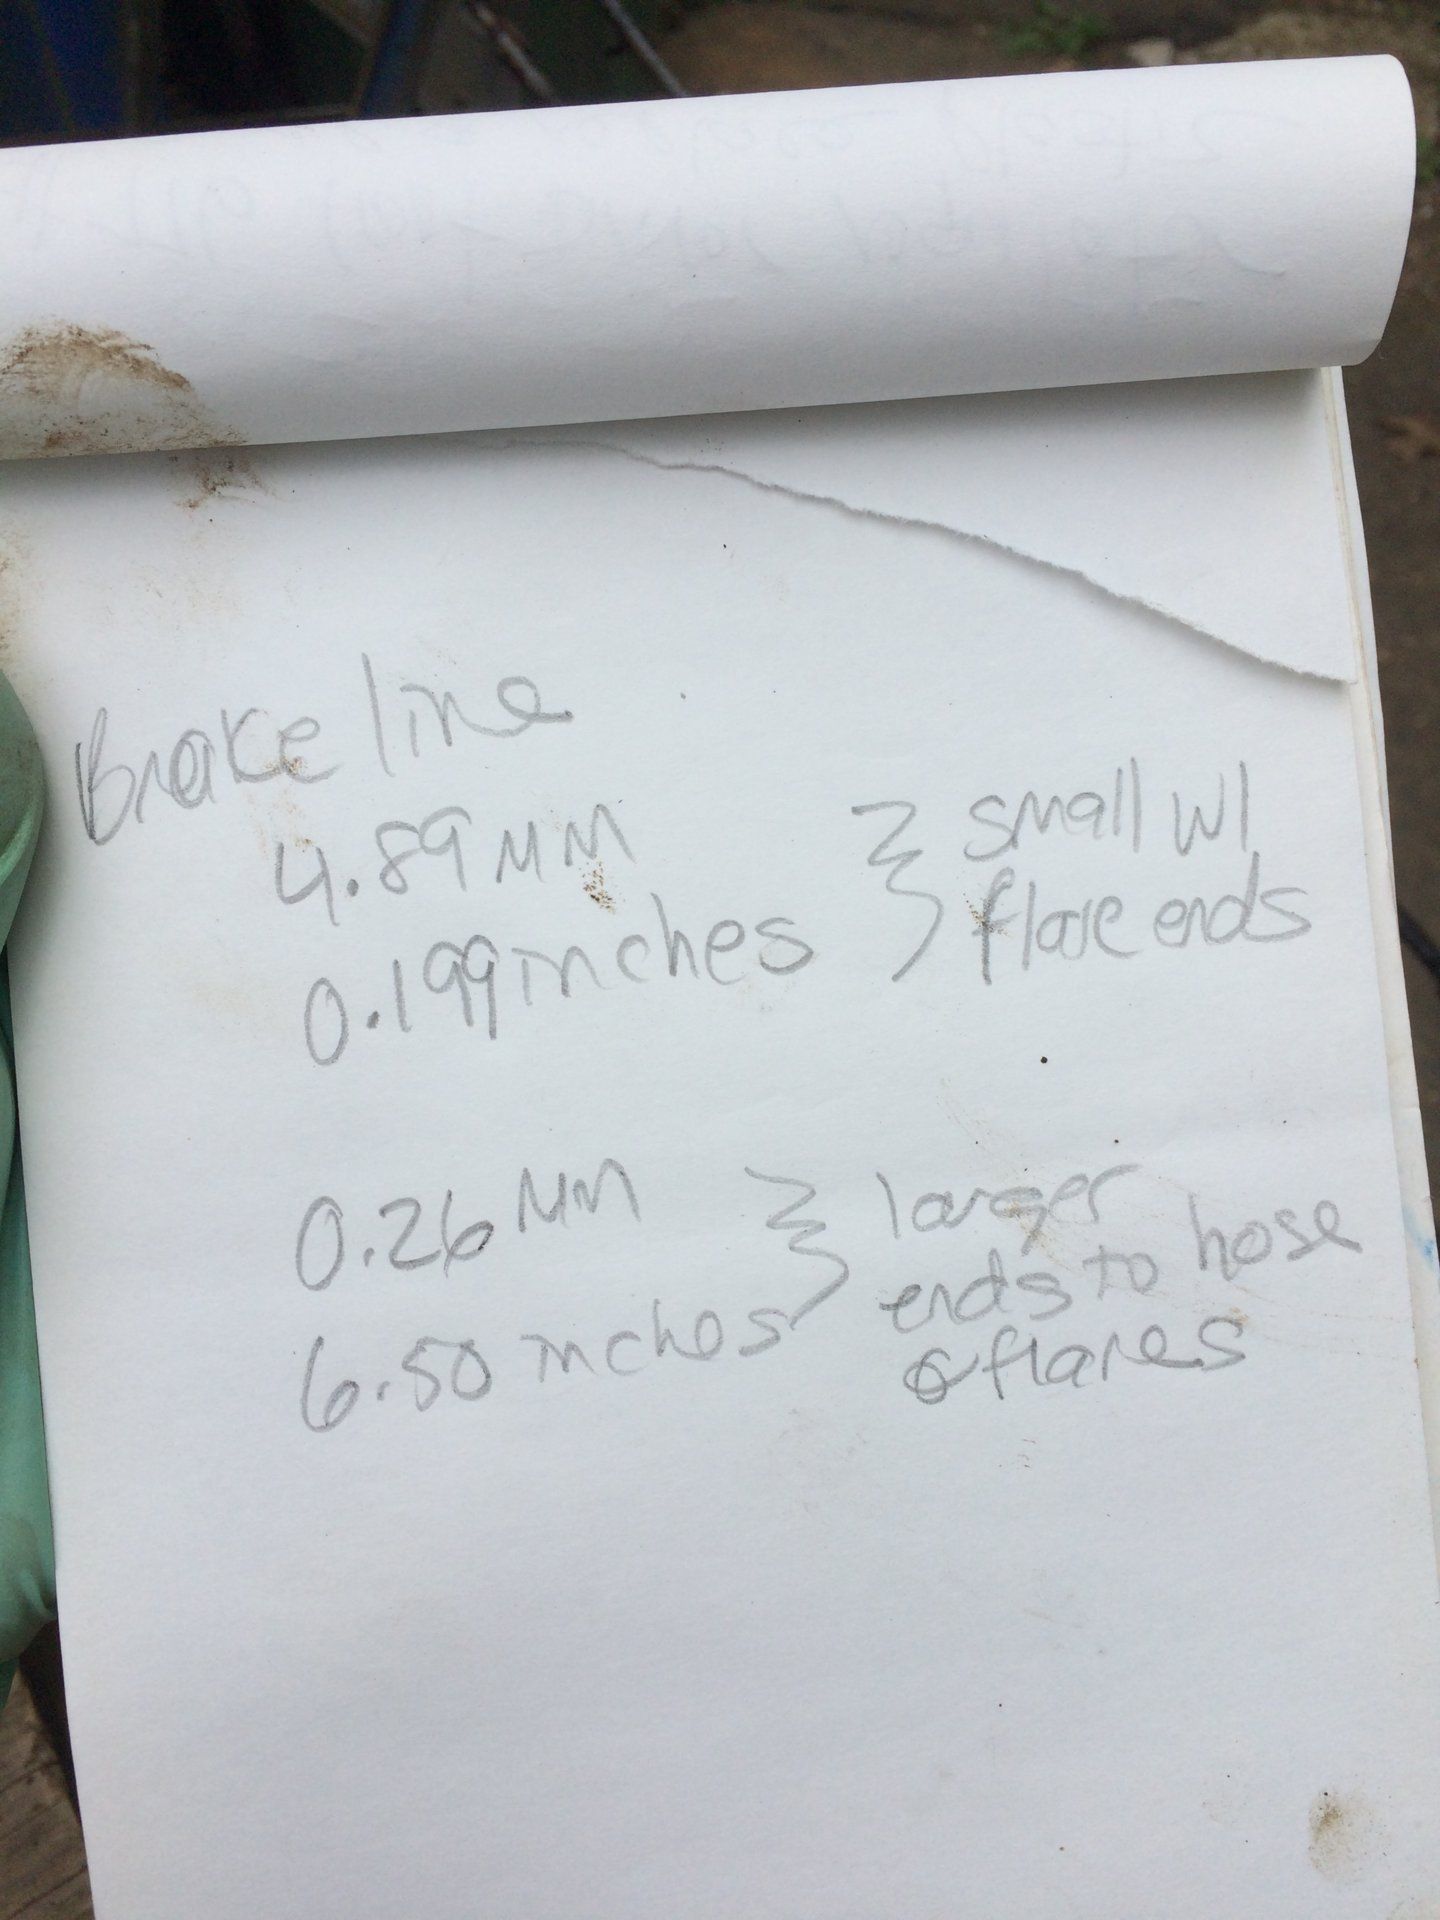 Brake line
4.89 MM
0.199 inches
small w/
flare ends
0.26 MM
6.50 inches
larger
ends to hose
& flares